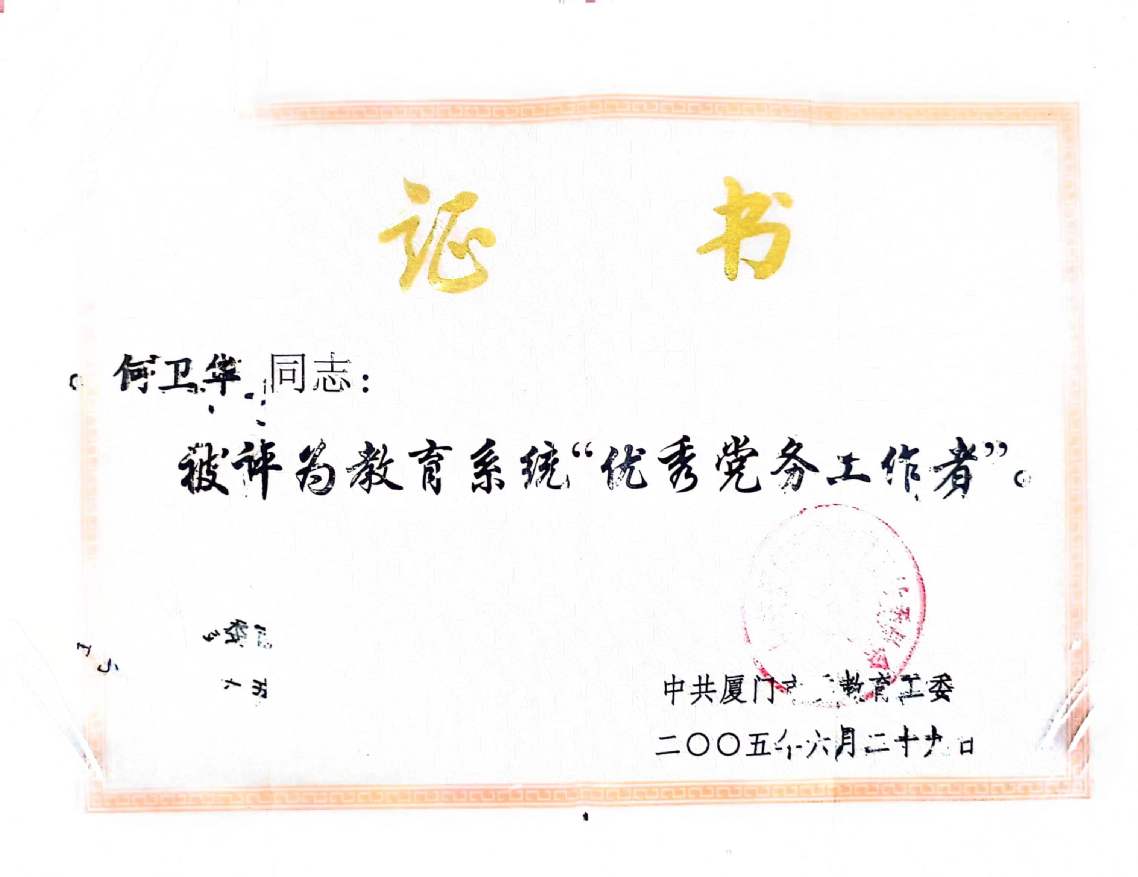 证书
何卫华 同志：
被评为教育系统“优秀党务工作者”。
中共厦门市 教育工委
二〇〇五年六月二十九日